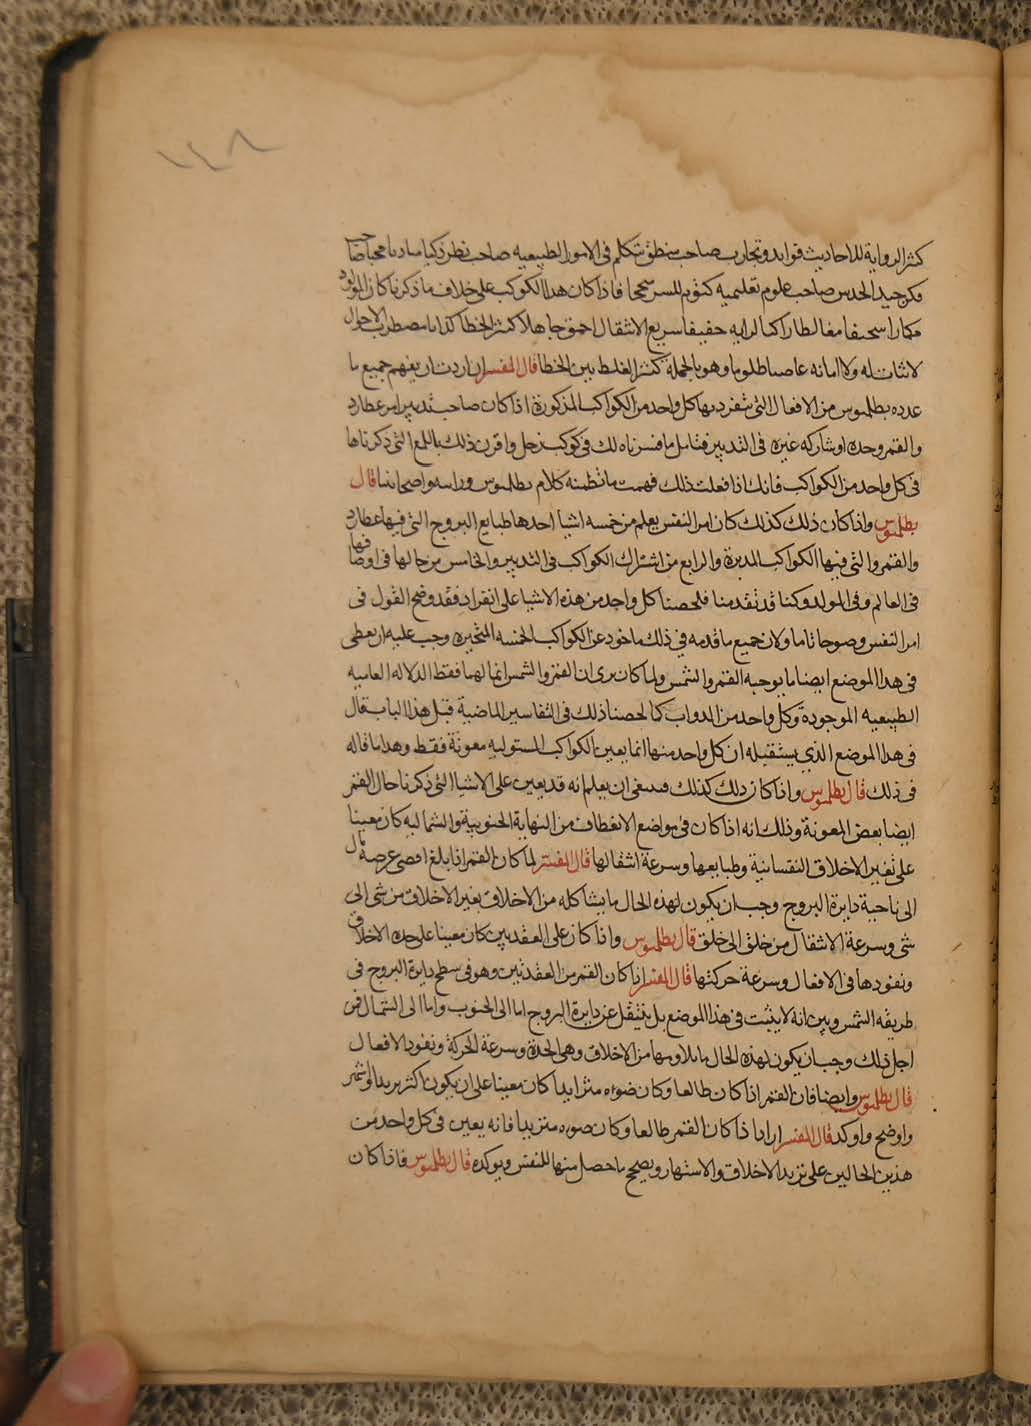 ١٤٨
كثير الرواية للاحاديث فوايد وتجارب صاحب منطق متكلم في الامور الطبيعيه صاحب نظر ذكيا محبا صاحب
فكر جيد الحدس صاحب علوم تعليميه فاذا كان هذا الكوكب على خلاف ما ذكرنا كان المولود
مكارا سخيفا الرايه خفيفا سريع الانتقال احمق جاهلا كثير الخطا كذابا مضطرب الاحوال
لا ثبات له ولا امانه عاصيا ظلوما وهو بالجملة كثير الغلط بين الخطا قال المفسر ان اردت ان يفهم جميع ما
عدده بطلميوس من الافعال التي ينفرد بها كل واحد من الكواكب المذكورة اذا كان صاحب تدبير امر عطارد
والقمر وحده او شاركه غيره في التدبير فتامل ما فسرناه لك في كوكب زحل واقرن ذلك بالبلع التي ذكرناها
في كل واحد من الكواكب فانك اذا فعلت ذلك فهمت ما نظمنه كلام بطلميوس قال
بطلميوس واذا كان ذلك كذلك كان امر النفس يعلم من خمسه اشيا احدها طبايع البروج التي فيها عطارد
والقمر والتي فيها الكواكب المدبرة والرابع من اشتراك الكواكب في التدبير والخامس من حالها في اوضاعها
في العالم وفي المولد وكنا قد تقدمنا فلخصنا كل واحد من هذه الاشيا على انفراد فقد وضح القول في
امر النفس وضوحا تاما ولان جميع ما قدمه في ذلك ماخوذ عن الكواكب الخمسه المتحيرة وجب عليه ان يعطى
في هذا الموضع ايضا ما يوجبه القمر والشمس ولما كان يرى ان القمر والشمس انما لهما فقط الدلاله العاميه
الطبيعيه الموجودة وكل واحد من الدواب كما لخصنا ذلك في التفاسير الماضية قبل هذا الباب قال
في هذا الموضع الذي يستقبله ان كل واحد منها انما يعين الكواكب المستوليه معونة فقط وهذا ما قاله
في ذلك قال بطلميوس واذا كان ذلك كذلك فينبغى ان يعلم انه قد يعين على الاشيا التي ذكرنا حال القمر
ايضا بعض المعونة وذلك انه اذا كان في مواضع الانعطاف من النهاية الجنوبية والشماليه كان معينا
على تغير الاخلاق النفسانية وطبايعها وسرعة انتقالها قال المفسر لما كان القمر اذا بلغ اقصى عرضه مال
الى ناحية دايرة البروج وجب ان يكون لهذه الحال ما يشاكله من الاخلاق بغير الاخلاق من شى الى
شى وسرعة الانتقال من خلق الى خلق قال بطلميوس واذا كان على العقدتين كان معينا على حدة الاخلاق
ونفوذها في الافعال وسرعة حركتها قال المفسر اذا كان القمر من العقدتين وهو في سطح دايرة البروج في
طريقه الشمس وبين انه لا يثبت في هذا الموضع بل ينتقل عن دايرة البروج اما الى الجنوب واما الى الشمال فمن
اجل ذلك وجب ان يكون لهذه الحال ما يلاومها من الاخلاق وهى الحدة وسرعة الحركة ونفوذ الافعال
قال بطلميوس وايضا فان القمر اذا كان طالعا وكان ضوءه متزايدا كان معينا على ان يكون اكثر
واوضح واوكد قال المفسر ارادا اذا كان القمر طالعا وكان ضوءه متزيدا فانه يعين في كل واحد من
هذين الحالين على تزيد الاخلاق والاستشهار ويصحح ما حصل منها للنفس ويوكده قال بطلميوس فاذا كان